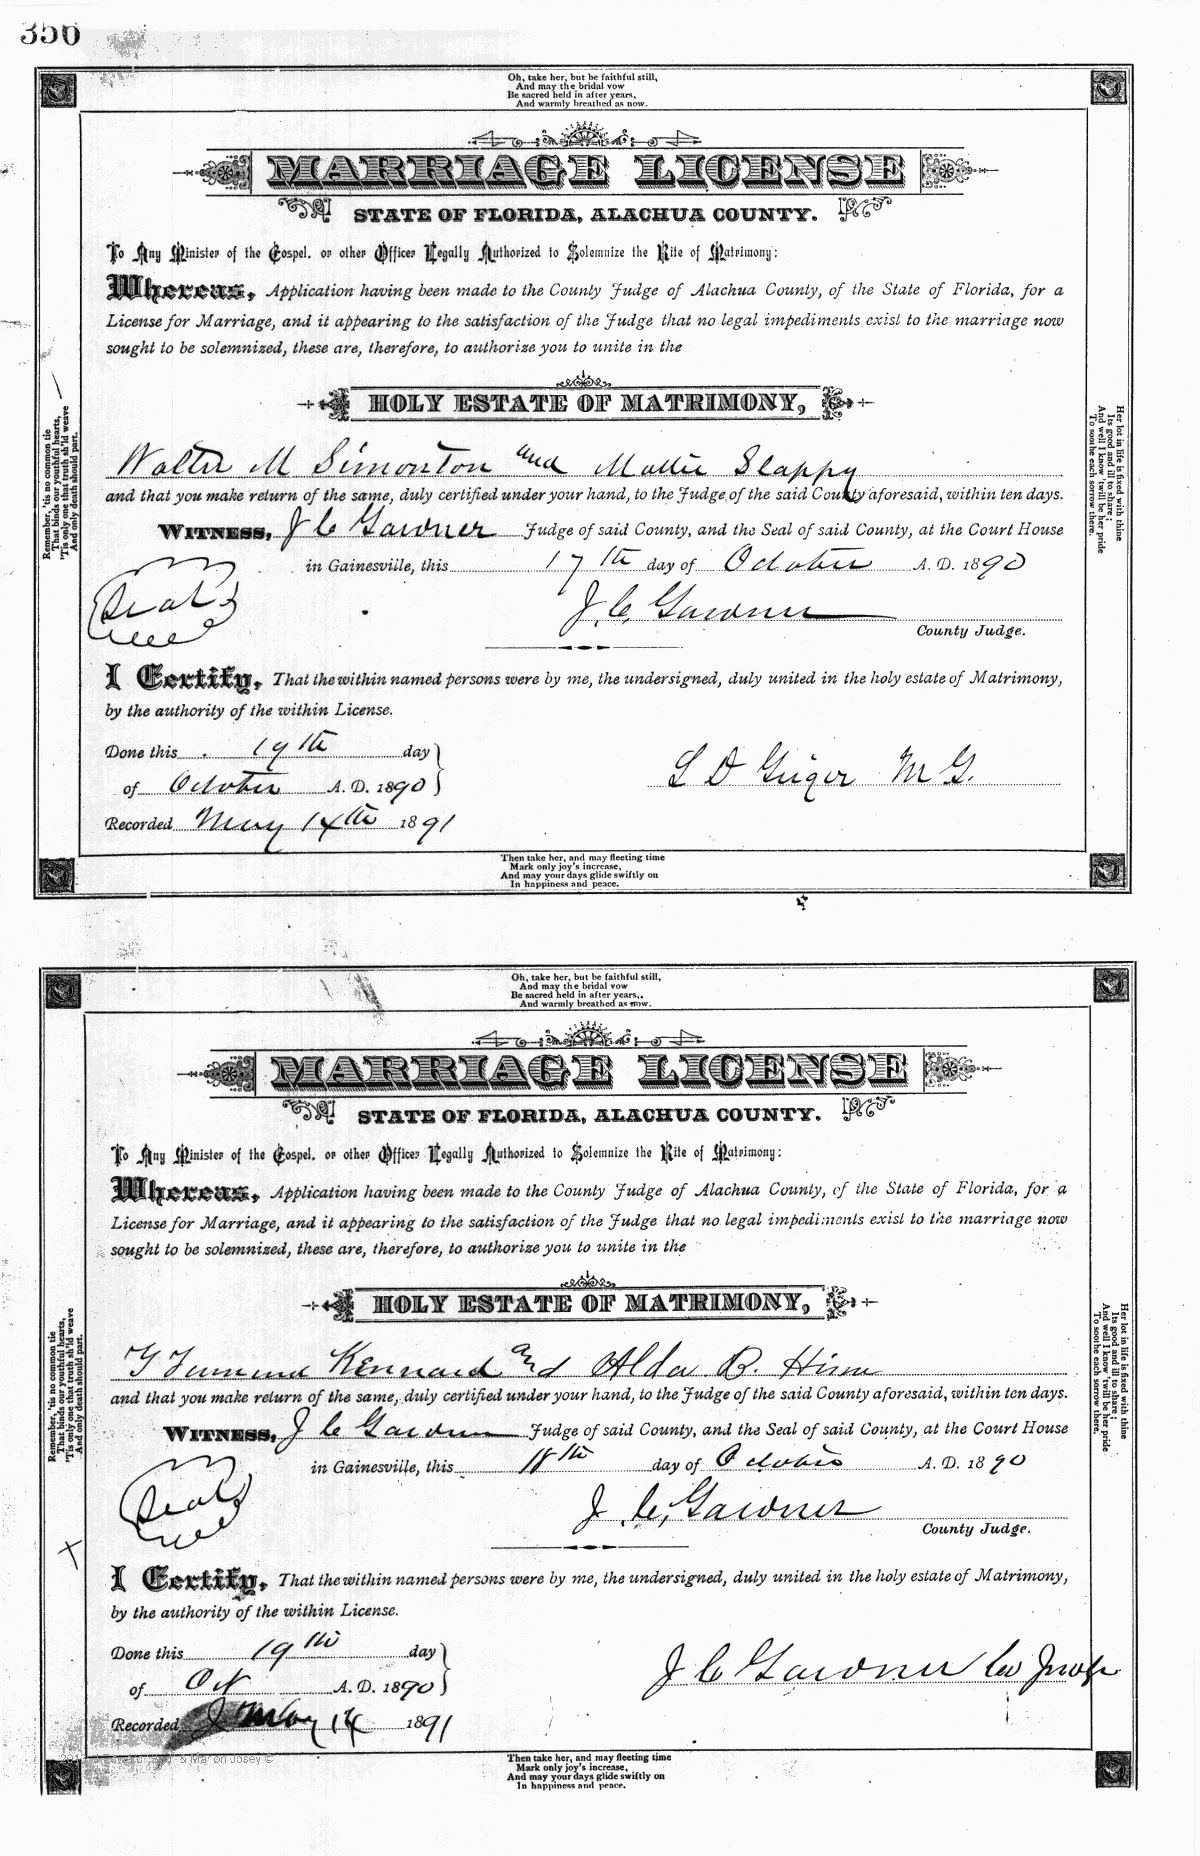 350
Oh, take her, but be faithful still,
And may the bridal vow
Be sacred held in after years,
And warmly breathed as now.
MARRIAGE LICENSE
STATE OF FLORIDA, ALACHUA COUNTY.
To Any Minister of the Gospel, or other Officer Legally Authorized to Solemnize the Rite of Matrimony:
Whereas, Application having been made to the County Judge of Alachua County, of the State of Florida, for a
License for Marriage, and it appearing to the satisfaction of the Judge that no legal impediments exist to the marriage now
sought to be solemnized, these are, therefore, to authorize you to unite in the
HOLY ESTATE OF MATRIMONY,
Walter M Simonton and Mattie Slappy
and that you make return of the same, duly certified under your hand, to the Judge of the said County aforesaid, within ten days.
WITNESS, J C Gardner Judge of said County, and the Seal of said County, at the Court House
in Gainesville, this 17th day of October A. D. 1890
Seal
J. C. Gardner
County Judge.
I Certify, That the within named persons were by me, the undersigned, duly united in the holy estate of Matrimony,
by the authority of the within License.
Done this 19th day
of October A. D. 1890
L D Geiger M G.
Recorded May 14th 1891
Remember, 'tis no common tie
That binds our youthful hearts,
'Tis only one that truth sh'ld weave
And only death should part.
Her lot in life is fixed with thine
Its good and ill to share;
And well I know 'twill be her pride
To soothe each sorrow there.
Then take her, and may fleeting time
Mark only joy's increase,
And may your days glide swiftly on
In happiness and peace.
Oh, take her, but be faithful still,
And may the bridal vow
Be sacred held in after years,
And warmly breathed as now.
MARRIAGE LICENSE
STATE OF FLORIDA, ALACHUA COUNTY.
To Any Minister of the Gospel, or other Officer Legally Authorized to Solemnize the Rite of Matrimony:
Whereas, Application having been made to the County Judge of Alachua County, of the State of Florida, for a
License for Marriage, and it appearing to the satisfaction of the Judge that no legal impediments exist to the marriage now
sought to be solemnized, these are, therefore, to authorize you to unite in the
HOLY ESTATE OF MATRIMONY,
Kennard and Alda B.
and that you make return of the same, duly certified under your hand, to the Judge of the said County aforesaid, within ten days.
WITNESS, J C Gardner Judge of said County, and the Seal of said County, at the Court House
in Gainesville, this 18th day of October A. D. 1890
Seal
J. C. Gardner
County Judge.
I Certify, That the within named persons were by me, the undersigned, duly united in the holy estate of Matrimony,
by the authority of the within License.
Done this 19th day
of Oct A. D. 1890
J C Gardner Co Judge
Recorded May 14 1891
Josey ©
Remember, 'tis no common tie
That binds our youthful hearts,
'Tis only one that truth sh'ld weave
And only death should part.
Her lot in life is fixed with thine
Its good and ill to share;
And well I know 'twill be her pride
To soothe each sorrow there.
Then take her, and may fleeting time
Mark only joy's increase,
And may your days glide swiftly on
In happiness and peace.